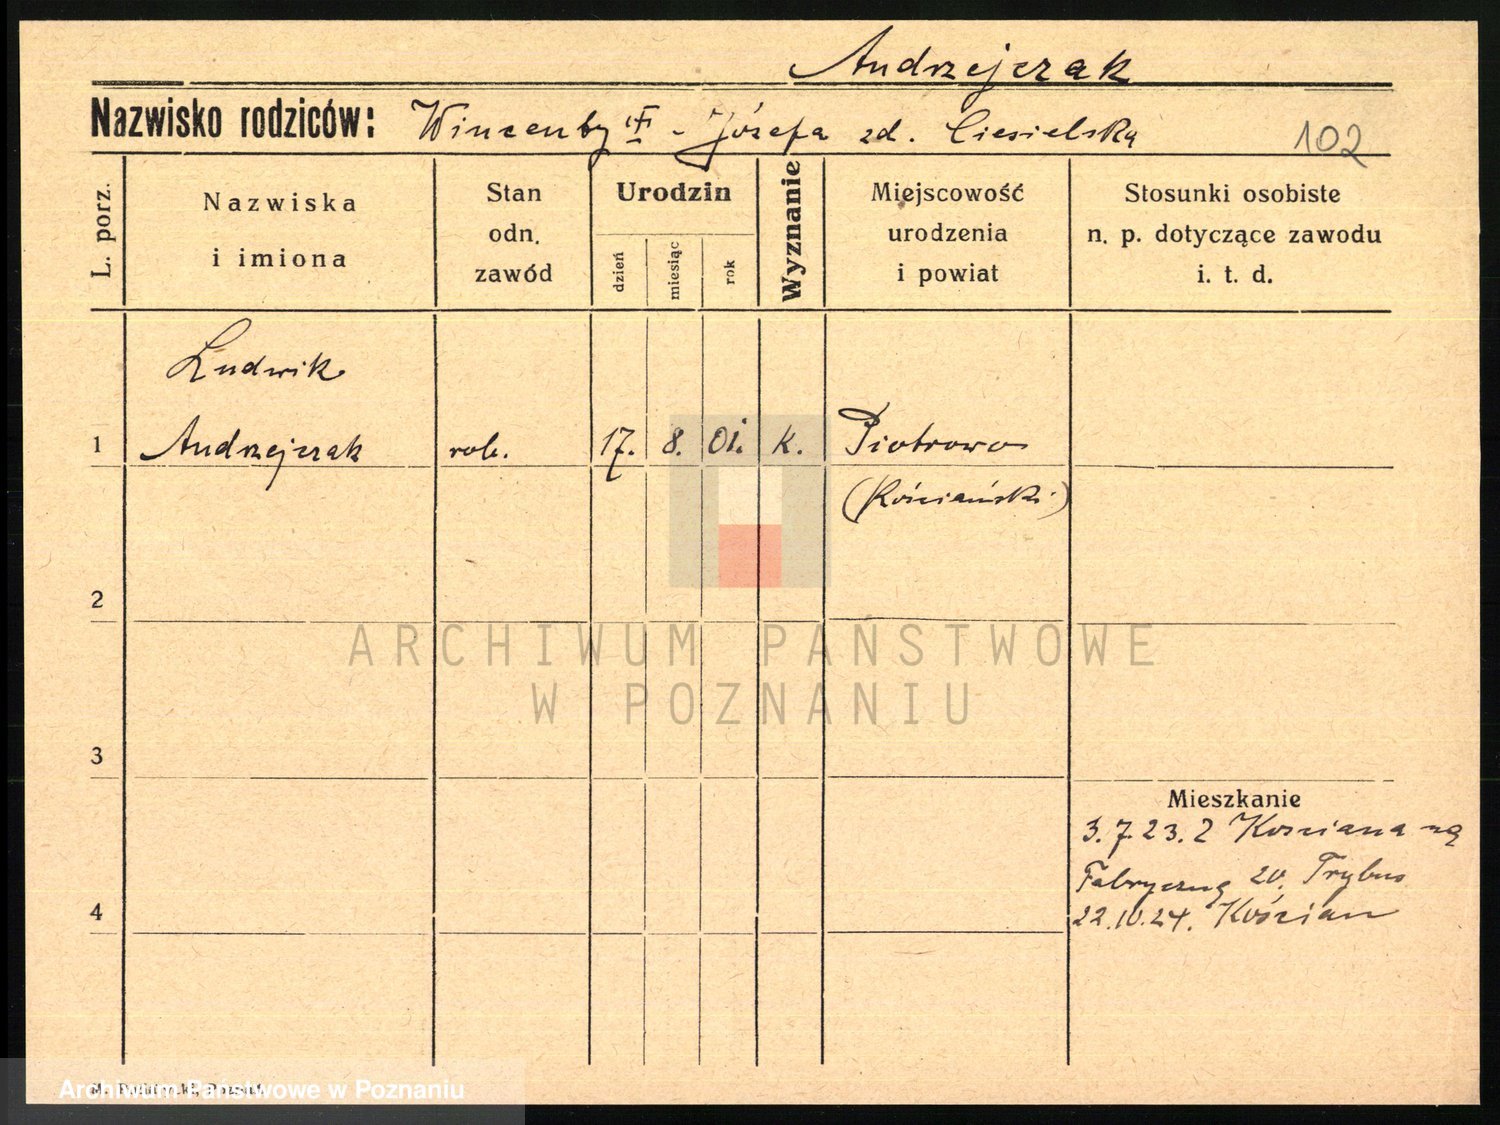 Andrzejczak
Nazwisko rodziców: Wincenty - Józefa zd. Ciesielska
102
L. porz.
Nazwiska
i imiona
Stan
odn.
zawód
Urodzin
dzień
miesiąc
rok
Wyznanie
Miejscowość
urodzenia
i powiat
Stosunki osobiste
n. p. dotyczące zawodu
i. t. d.
Ludwik
1 Andrzejczak rob. 17. 8. 01. K. Piotrowo
(Kościański)
2
ARCHIWUM PAŃSTWOWE
W POZNANIU
3
Mieszkanie
3.7.23. Z Kościana na
Fabryczną 20. Trybus
4
22.10.24. Kościan
Archiwum Państwowe w Poznaniu